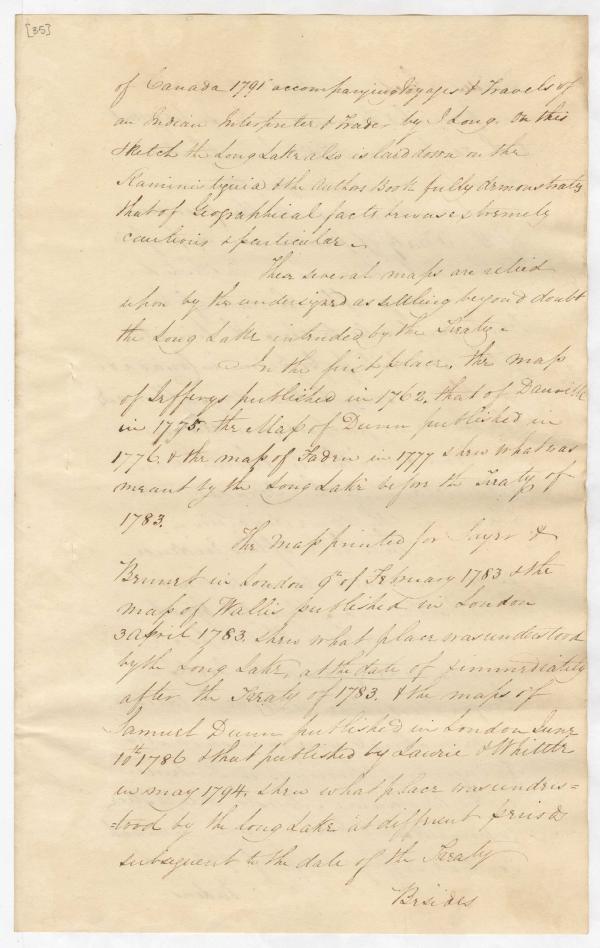 [35]
of Canada 1791 accompanying Voyages & Travels of
an Indian Interpreter & Trader by J Long. on this
sketch the Long Lake also is laid down on the
Kaministiquia & the Authors Book fully demonstrates
that of Geographical facts he was extremely
cautious & particular.
These several maps are relied
upon by the undersigned as settling beyond doubt
the Long Lake intended by the Treaty.
In the first place, the map
of Jefferys published in 1762, that of Danville
in 1775. the Map of Dunn published in
1776. & the map of Faden in 1777 shew what was
meant by the Long Lake before the Treaty of
1783.
The map printed for Sayer &
Bennet in London 9th of February 1783 & the
map of Wallis published in London
3 April 1783. shew what place was understood
by the Long Lake, at the date of & immediately
after the Treaty of 1783. & the maps of
Samuel Dunn published in London June
10th 1786 & that published by Laurie & Whittle
in may 1794. shew what place was unders=
=tood by the Long Lake at different periods
subsequent to the date of the Treaty
Besides